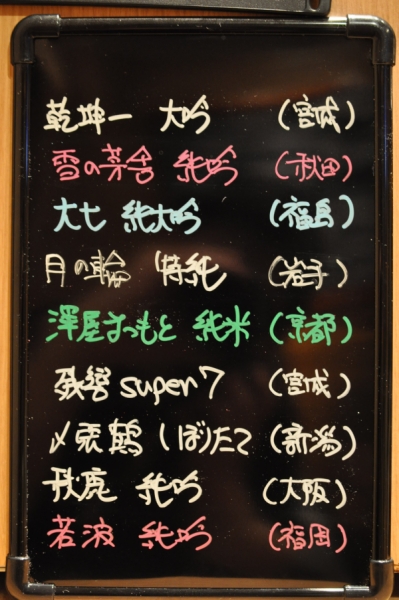 乾坤一 大吟 (宮城)
雪の茅舎 純吟 (秋田)
大七 純大吟 (福島)
月の輪 特純 (岩手)
澤屋まつもと 純米 (京都)
残響 super7 (宮城)
〆張鶴 しぼりたて (新潟)
秋鹿 純吟 (大阪)
若波 純吟 (福岡)